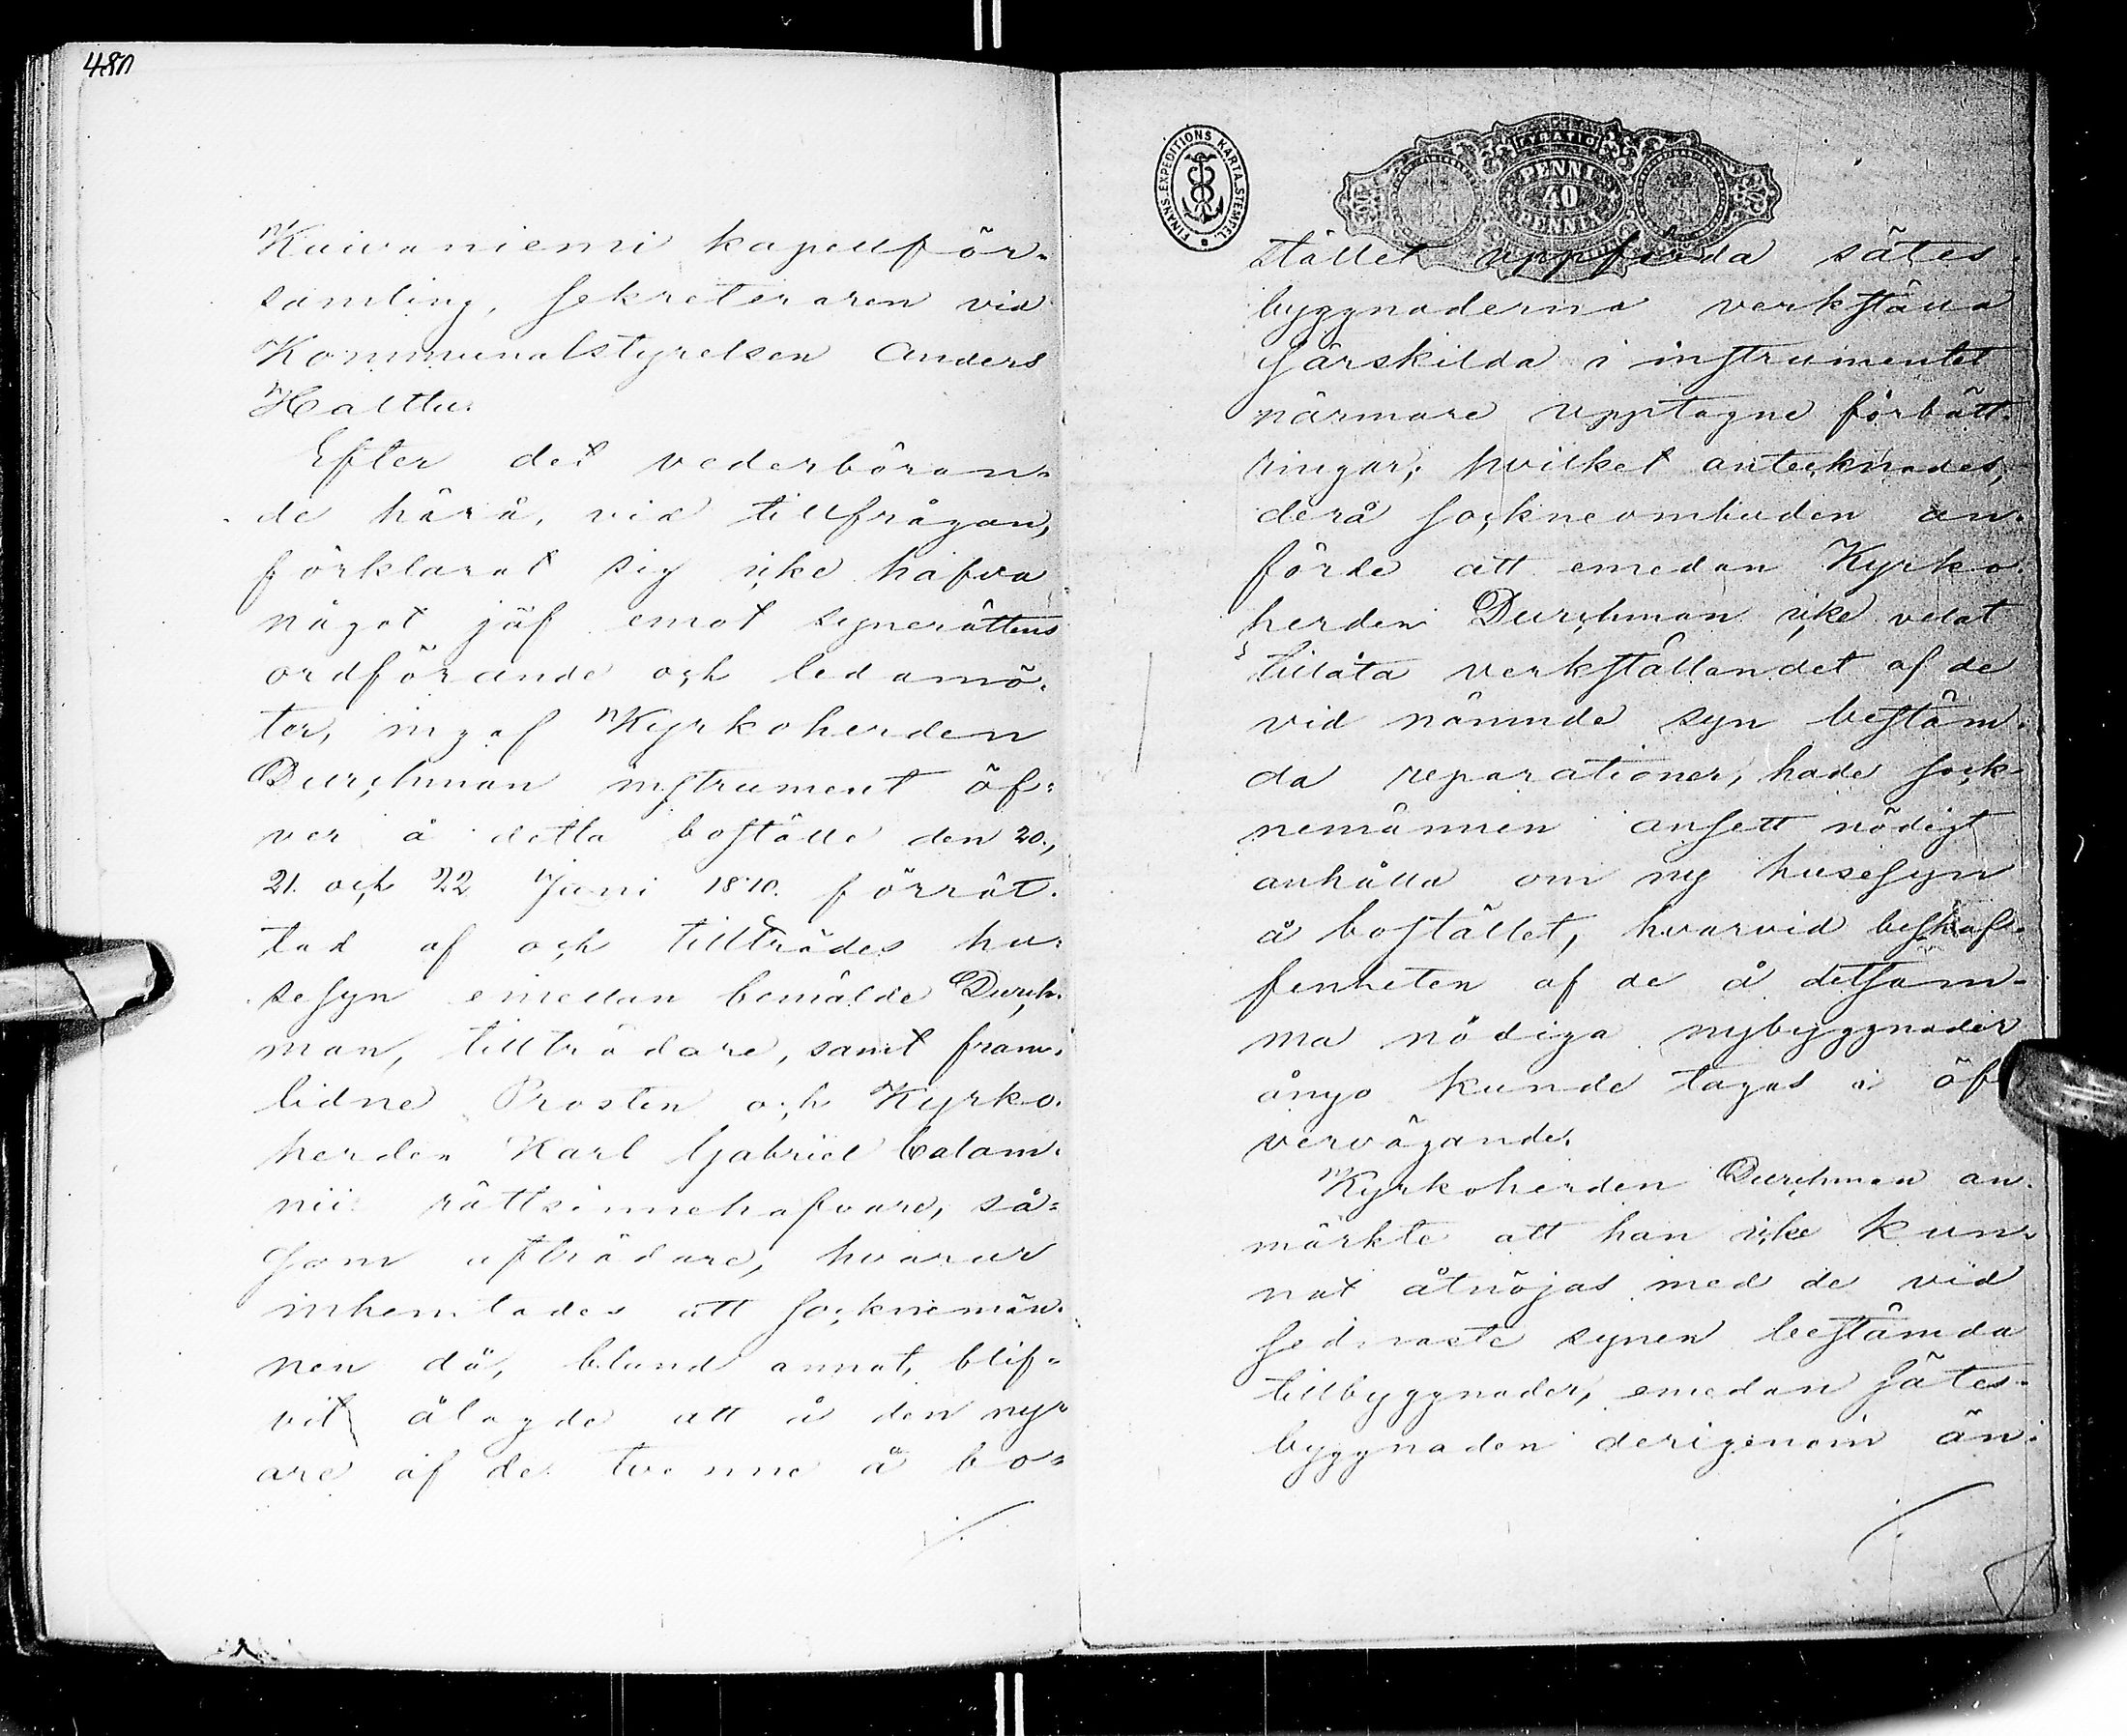 480
Kuivaniemi kapellför-
samling, Sekreteraren vid
Kommunalstyrelsen Anders
Halttu.
Efter det vederböran-
de härå, vid tillfrågan,
förklarat sig icke hafva
något jäf emot synerättens
ordförande och ledamö-
ter, ingaf Kyrkoherden
Durchman instrument öf-
ver å detta boställe den 20.,
21. och 22 Juni 1870. förrät-
tad af och tillträdes hu-
sesyn emellan bemälde Durch-
man, tillträdare, samt fram-
lidne Prosten och Kyrko-
herden Karl Gabriel Calam-
nii rättsinnehafvare, så-
som afträdare, hvarur
inhemtades att socknemän-
nen då, bland annat, blif-
vit ålagde att å den ny-
are af de tvenne å bo-
./.
FINANS EXPEDITIONS KARTA STEMPEL
PENNI
40
PENNIÄ
stället uppförda sätes-
byggnaderna verkställa
särskilda i instrumentet
närmare upptagne förbätt-
ringar; hvilket antecknades,
derå sockneombuden an-
förde att emedan Kyrko-
herden Durchman icke velat
tillåta verkställandet af de
vid nämnde syn bestäm-
da reparationer, hade sock-
nemännen ansett nödigt
anhålla om ny husesyn
å bostället, hvarvid beskaf-
fenheten af de å detsam-
ma nödiga nybyggnader
ånyo kunde tagas i öf
vervägande.
Kyrkoherden Durchman an-
märkte att han icke kun-
nat åtnöjas med de vid
sednaste synen bestämda
tillbyggnader, emedan sätes-
byggnaden derigenom än-
./.